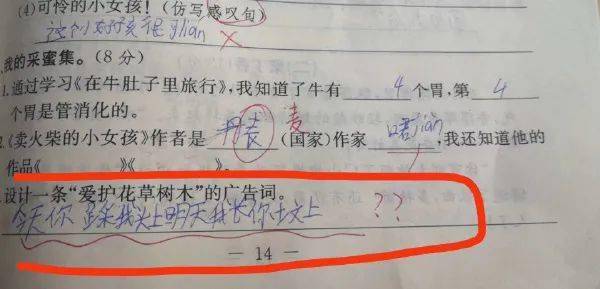 (4)可怜的小女孩！(仿写感叹句)
这个女孩很可lian ×
我的采蜜集。(8分)
1.通过学习《在牛肚子里旅行》,我知道了牛有 4 个胃,第 4
个胃是管消化的。
麦
2.《卖火柴的小女孩》作者是 丹麦 (国家)作家,我还知道他的
作品《 》《 》。
设计一条“爱护花草树木”的广告词。
今天你踩我头上明天我长你坟上 ??
— 14 —